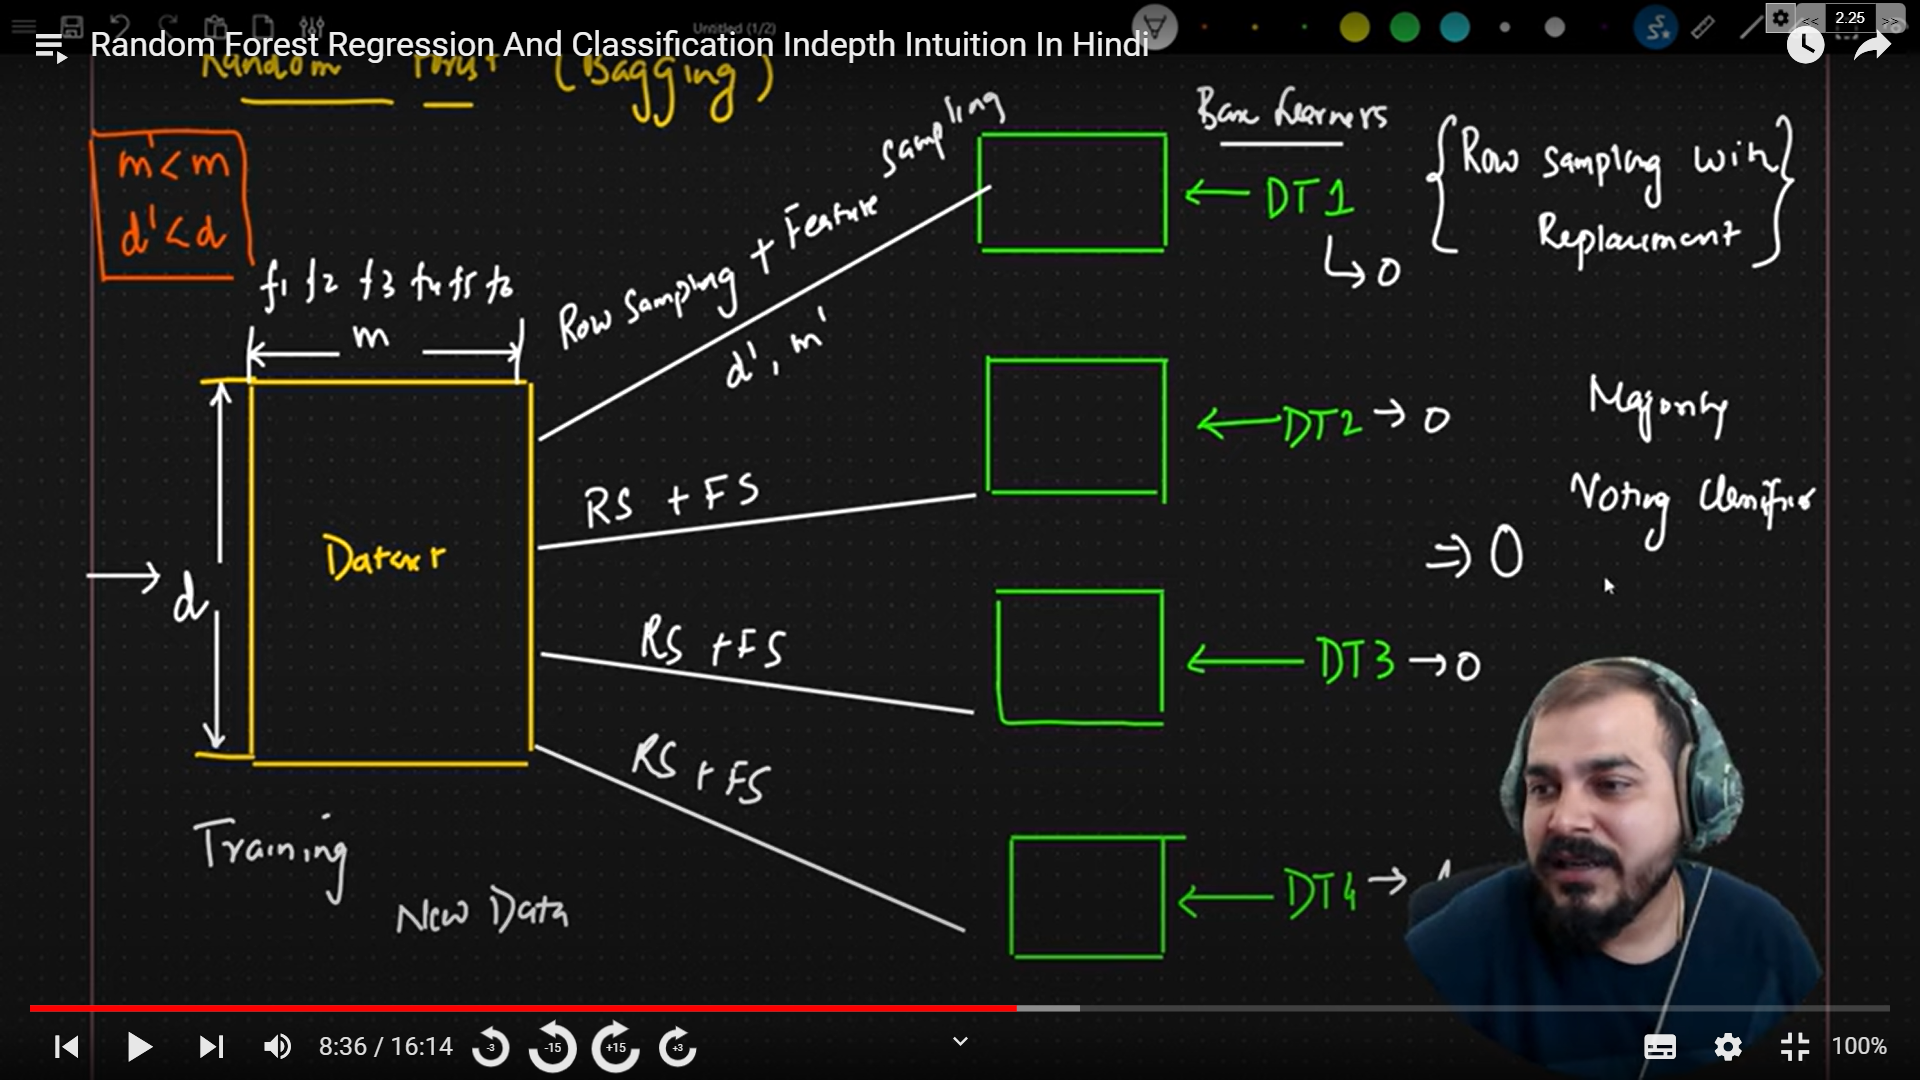 Untitled (1/2)
<< 2.25 >>
Random Forest Regression And Classification Indepth Intuition In Hindi
Random Forest (Bagging)
m' < m
d' < d
f1 f2 f3 f4 f5 f6
m
d
Dataset
Training
New Data
Row Sampling + Feature Sampling
d', m'
RS + FS
RS + FS
RS + FS
Base Learners
{Row sampling with
Replacement}
← DT1
↳ 0
← DT2 → 0
← DT3 → 0
← DT4 →
Majority
Voting Classifier
⇒ 0
8:36 / 16:14
-3
-15
+15
+3
100%